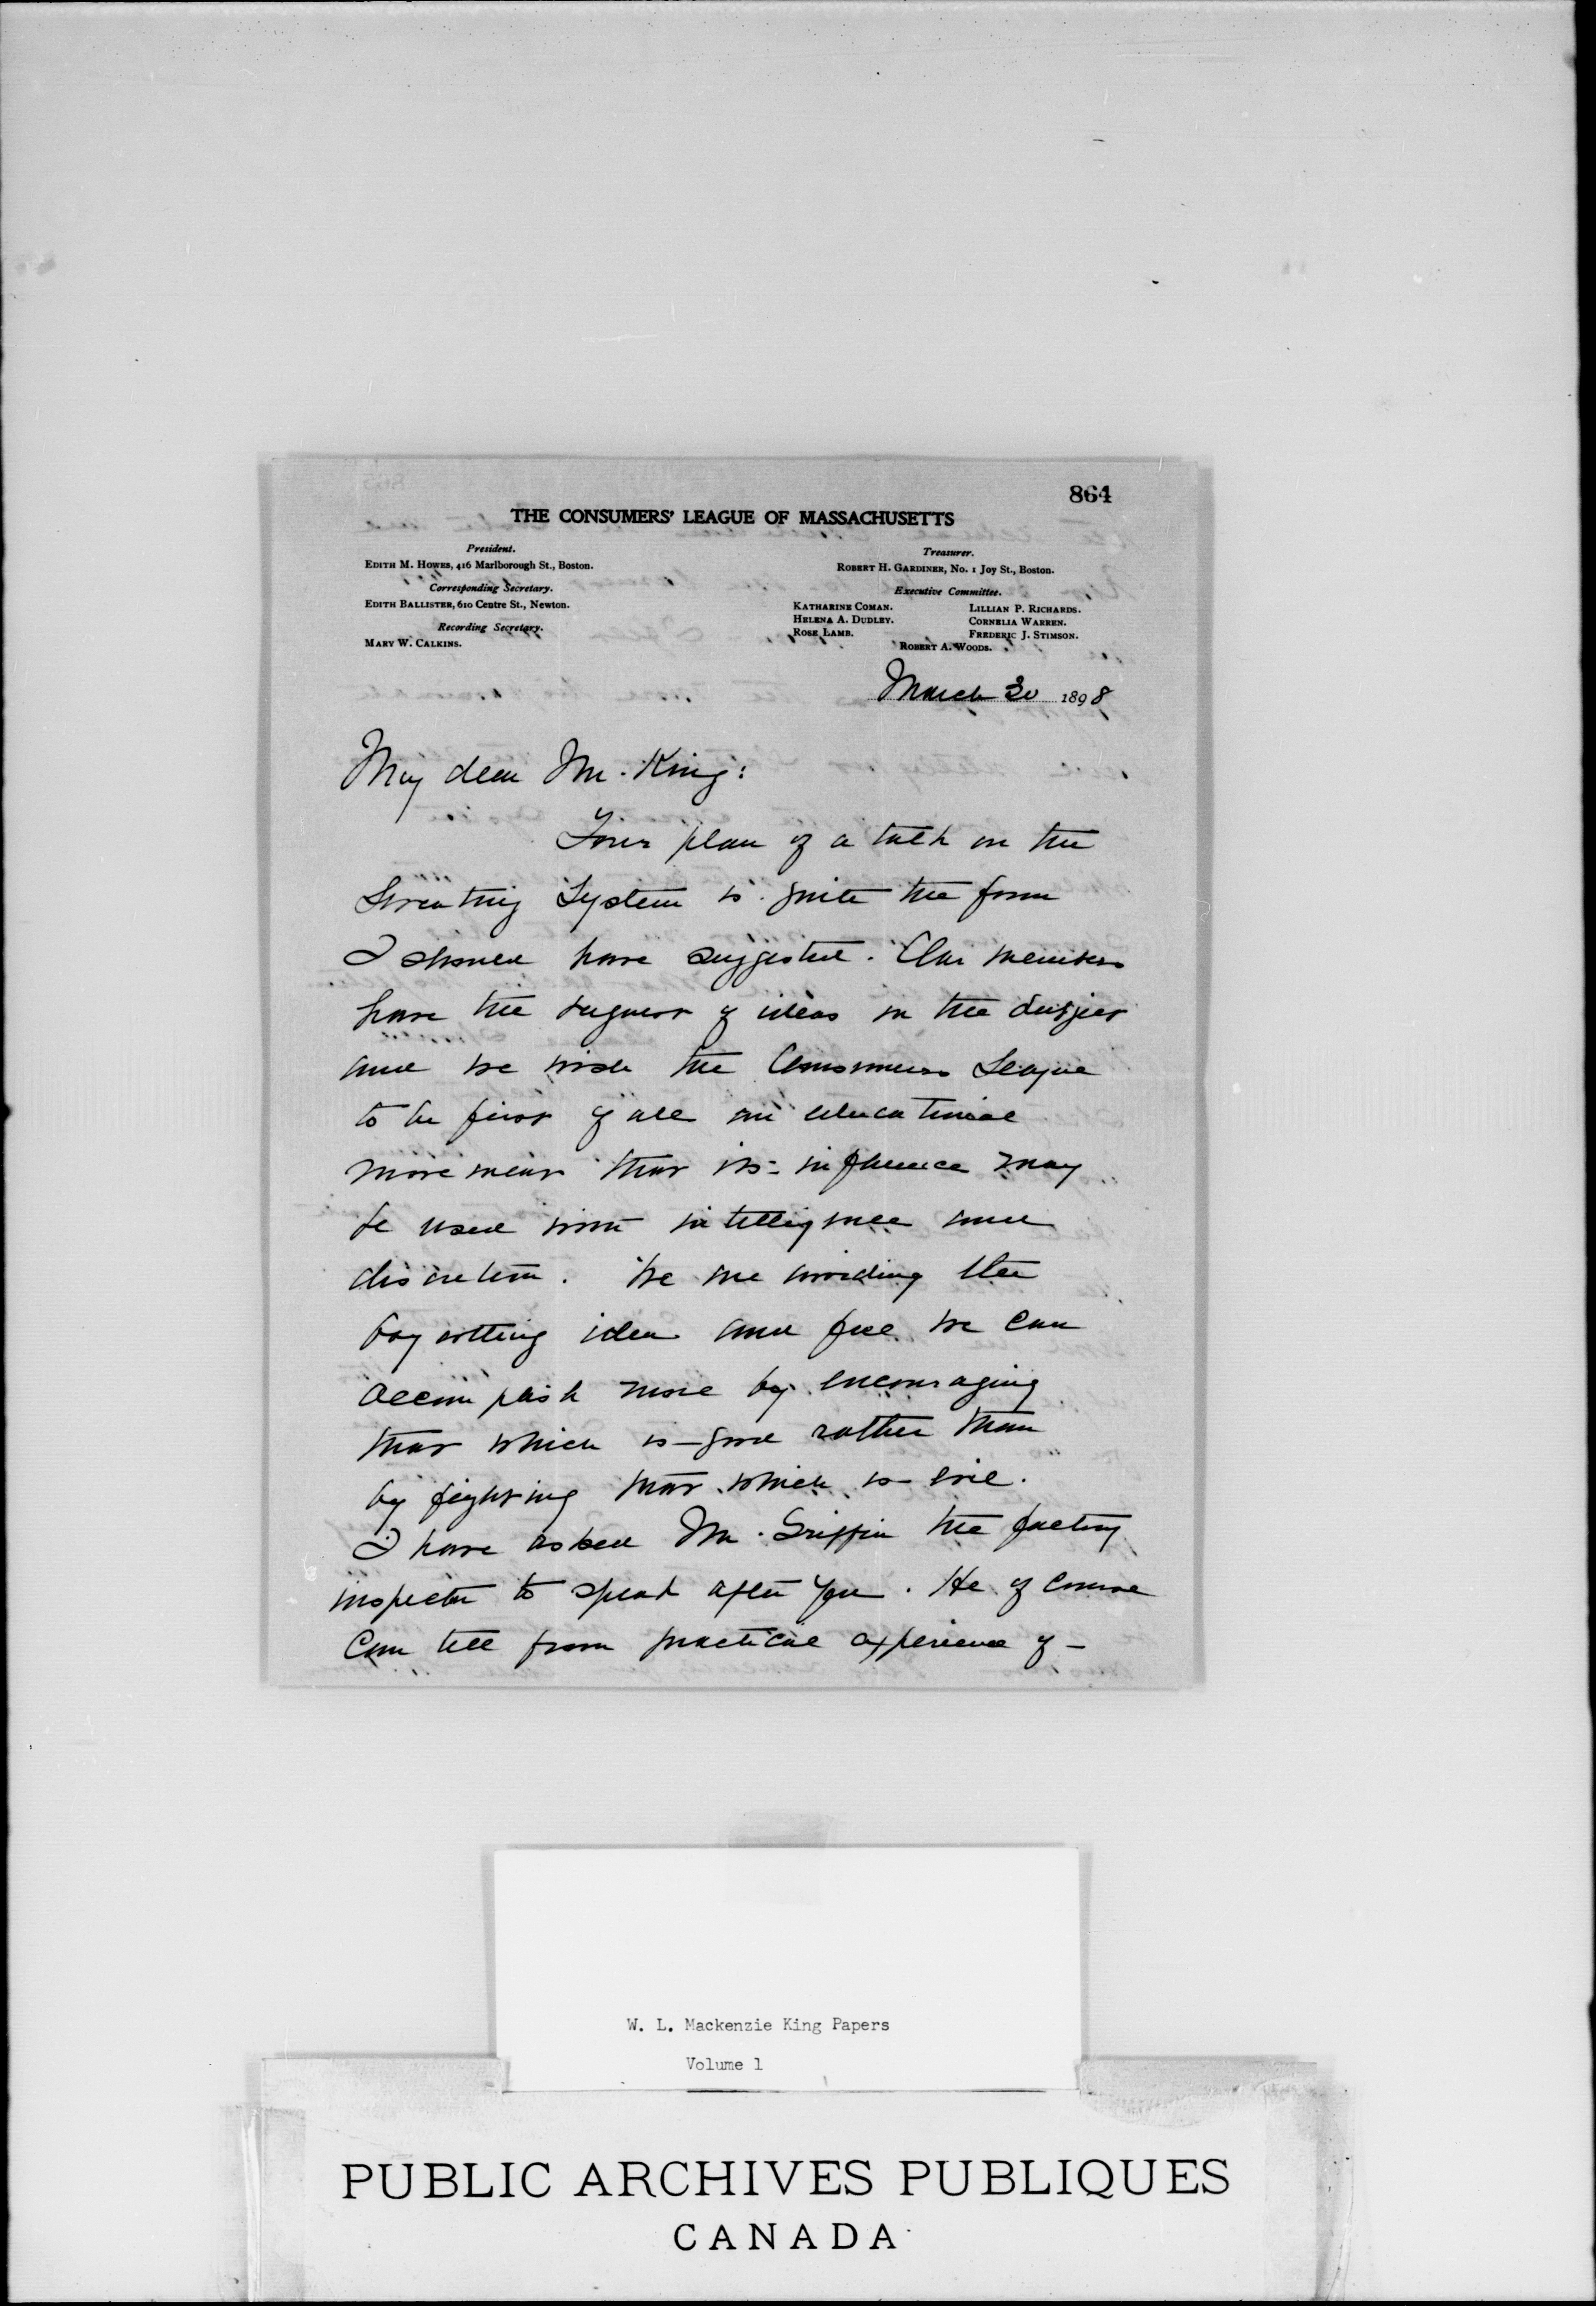 864
THE CONSUMERS' LEAGUE OF MASSACHUSETTS
President.
EDITH M. HOWES, 416 Marlborough St., Boston.
Corresponding Secretary.
EDITH BALLISTER, 610 Centre St., Newton.
Recording Secretary.
MARY W. CALKINS.
Treasurer.
ROBERT H. GARDINER, No. 1 Joy St., Boston.
Executive Committee.
KATHARINE COMAN. LILLIAN P. RICHARDS.
HELENA A. DUDLEY. CORNELIA WARREN.
ROSE LAMB. FREDERIC J. STIMSON.
ROBERT A. WOODS.
March 30 1898
My dear Mr. King:
Your plan of a talk on the
Sweating System is quite the form
I should have suggested. Our members
have the vaguest of ideas on the subject
and we wish the Consumers League
to be first of all an educational
movement that its influence may
be used with intelligence and
discretion. We are avoiding the
boycotting idea and feel we can
accomplish more by encouraging
that which is good rather than
by fighting that which is evil.
I have asked Mr. Griffin the factory
inspector to speak after you. He of course
can tell from practical experience of -
W. L. Mackenzie King Papers
Volume 1
PUBLIC ARCHIVES PUBLIQUES
CANADA